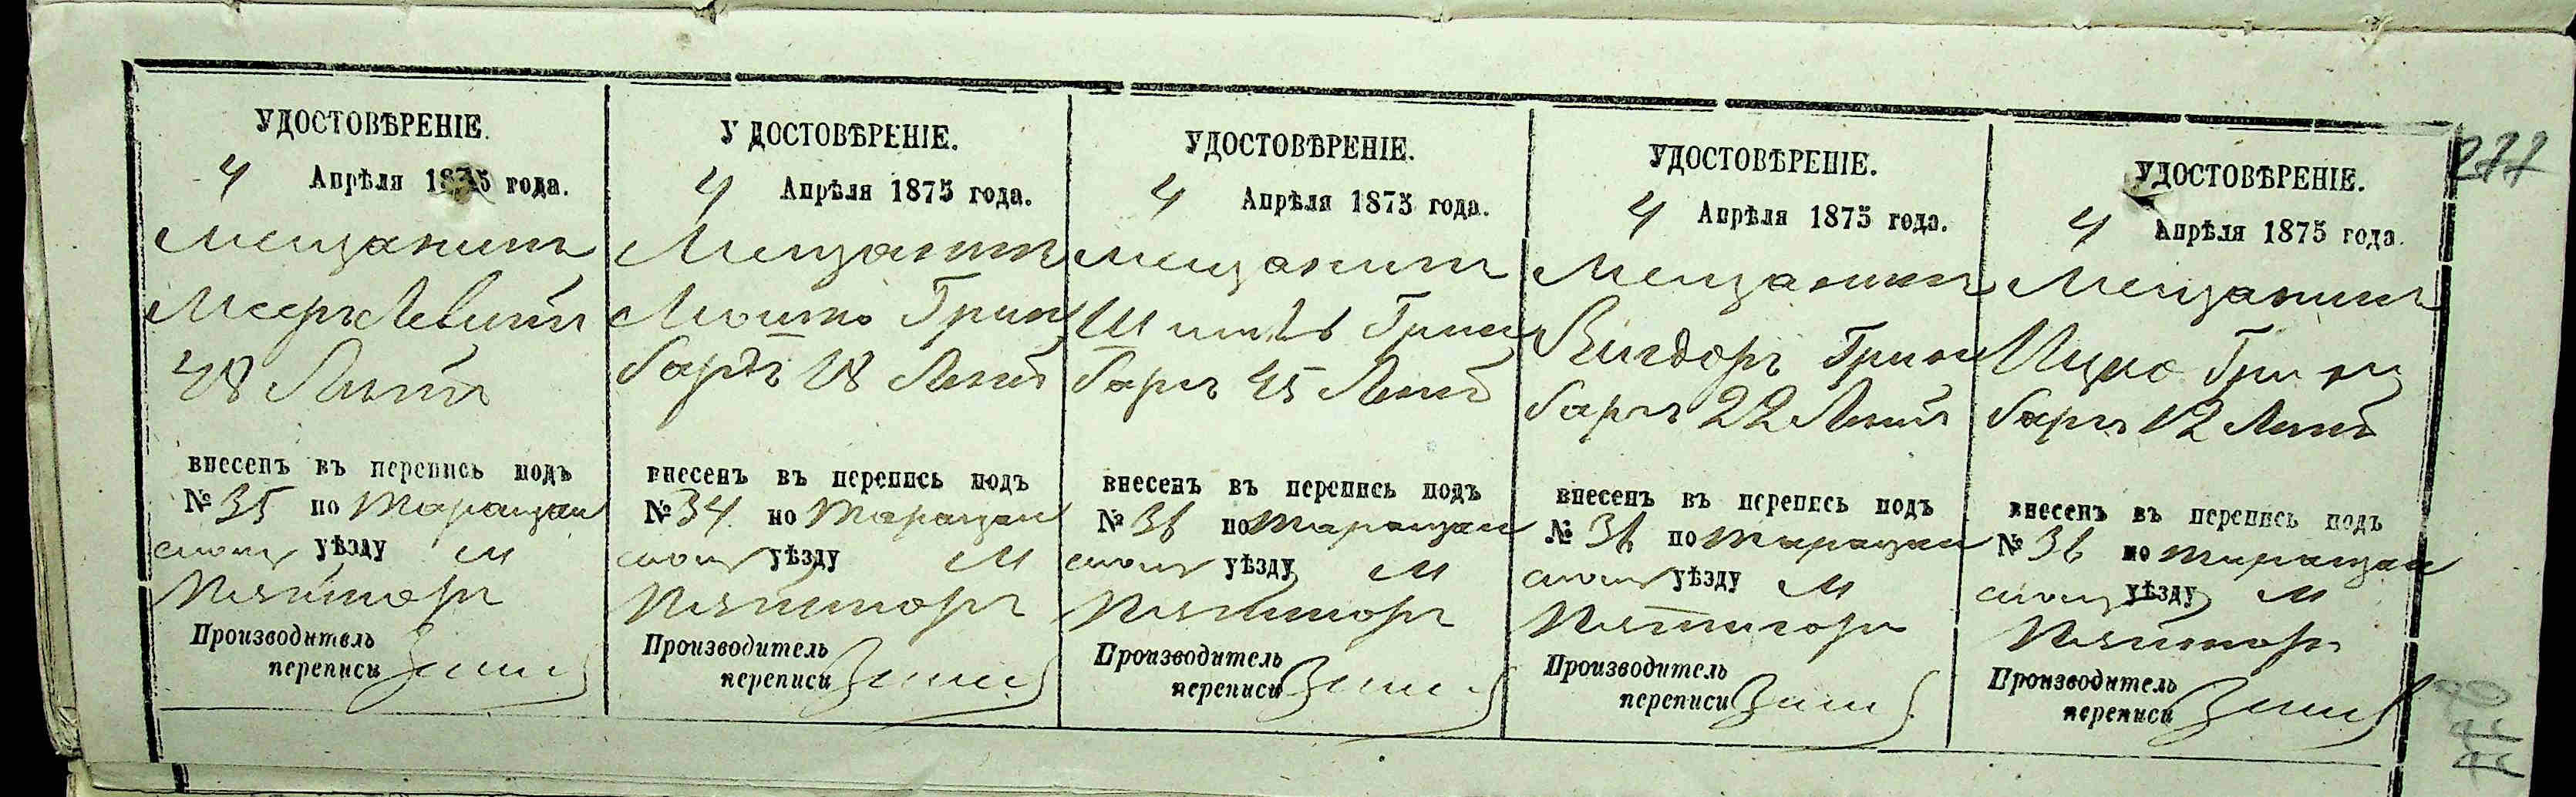 УДОСТОВѢРЕНІЕ.
4 Апрѣля 1875 года.
Мещанинъ
Мееръ Левитъ
48 Лѣтъ
внесенъ въ перепись подъ
№ 35 по Таращан
скому уѣзду М
Пятигоръ
Производитель
переписи
У ДОСТОВѢРЕНІЕ.
4 Апрѣля 1875 года.
Мещанинъ
Мошко Грин
баргъ 18 Лѣтъ
внесенъ въ перепись подъ
№ 34 по Таращан
скому уѣзду М
Пятигоръ
Производитель
переписи
УДОСТОВѢРЕНІЕ.
4 Апрѣля 1875 года.
Мещанинъ
Грин
баргъ 45 Лѣтъ
внесенъ въ перепись подъ
№ 36 по Таращан
скому уѣзду М
Пятигоръ
Производитель
переписи
УДОСТОВѢРЕНІЕ.
4 Апрѣля 1875 года.
Мещанинъ
Вигдоръ Грин
баргъ 22 Лѣтъ
внесенъ въ перепись подъ
№ 36 по Таращан
скому уѣзду М
Пятигоръ
Производитель
переписи
УДОСТОВѢРЕНІЕ.
4 Апрѣля 1875 года.
Мещанинъ
Ицко Грин
баргъ 12 Лѣтъ
внесенъ въ перепись подъ
№ 36 по Таращан
скому уѣзду М
Пятигоръ
Производитель
переписи
277